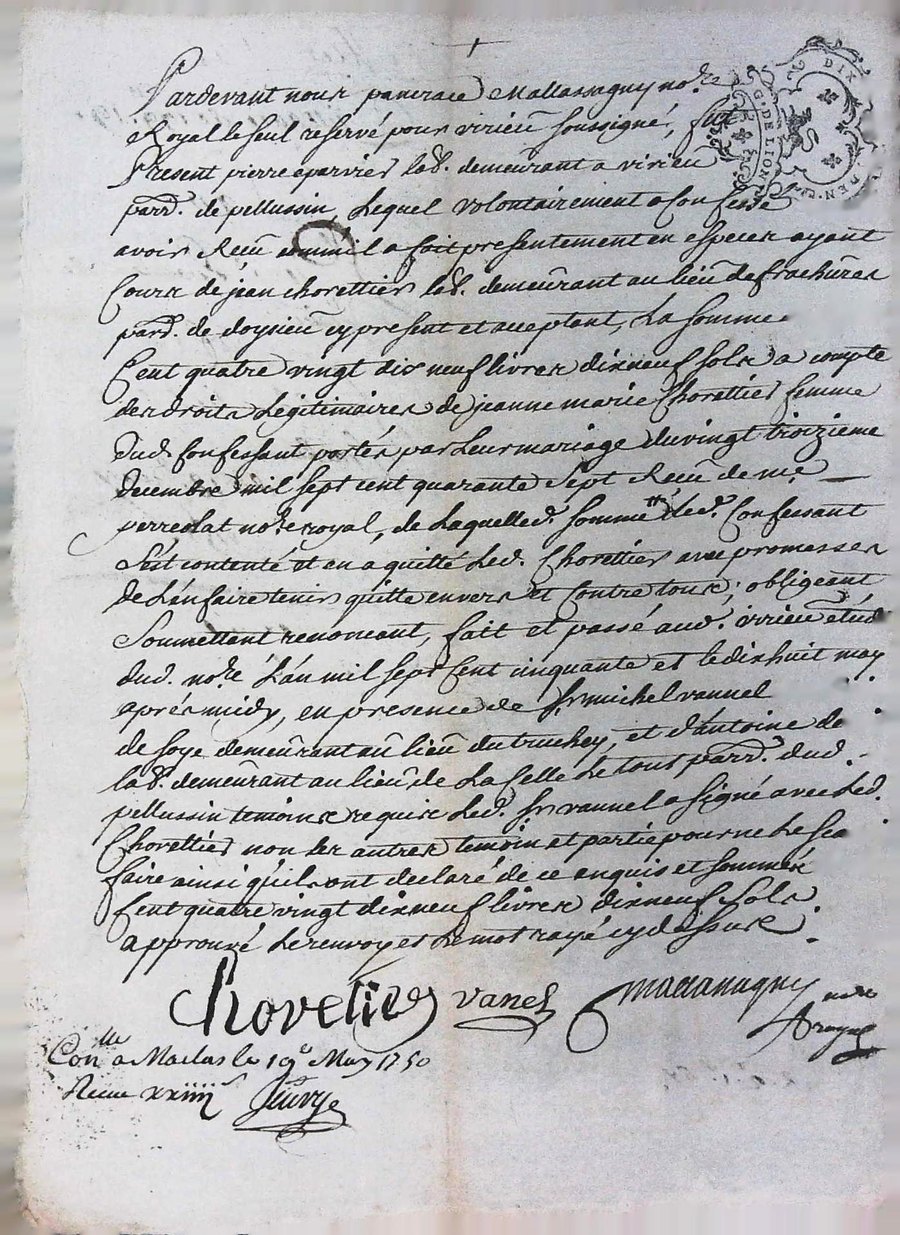 Pardevant nous pancrace Mallassagny no.re
Royal le seul reservé pour virieu soussigné, fut
Present pierre eparvier lab.r demeurant a virieu
parr. de pellussin, Lequel volontairement a Confessé
avoir Receu comme il a fait presentement en especes ayant
Cours de jean Chorettier lab.r demeurant au lieu de frachures
parr. de doysieu cy present et acceptant, La somme
Cent quatre vingt dix neuf livres dixneuf sols a compte
des droits Légitimaires de jeanne marie Chorettier femme
dud. Confessant portés par Leur mariage du vingt troizieme
decembre mil sept cent quarante sept Receu de me
perreolat no.re royal, de Laquelle d. somme led. Confessant
s'est contenté et en a quitté Led. Chorettier avec promesses
de L'en faire tenir quitte envers et Contre tous; obligeant
Soumettant renonceant, fait et passé aud. virieu etude
dud. no.re L'an mil sept Cent cinquante et le dixhuit may
après midy, en presence de Sr michel vannel
de soye demeurant au lieu du truchey, et d'antoine de
lab.r demeurant au lieu de La Celle Le tous parr. dud.
pellussin temoins requis Led. Sr vannel a signé avec Led.
Chorettier non les autres temoin et partie pour ne Le sca
faire ainsi qu'ils ont declaré de ce enquis et sommés
Cent quatre vingt dixneuf livres dixneuf sols
approuvé Le renvoy et Le mot rayé cy dessus
Chovetier vanel no.re
Royal
Con.lle a Maclas le 19e May 1750
Receu
DIX DEN.
G. DE LION